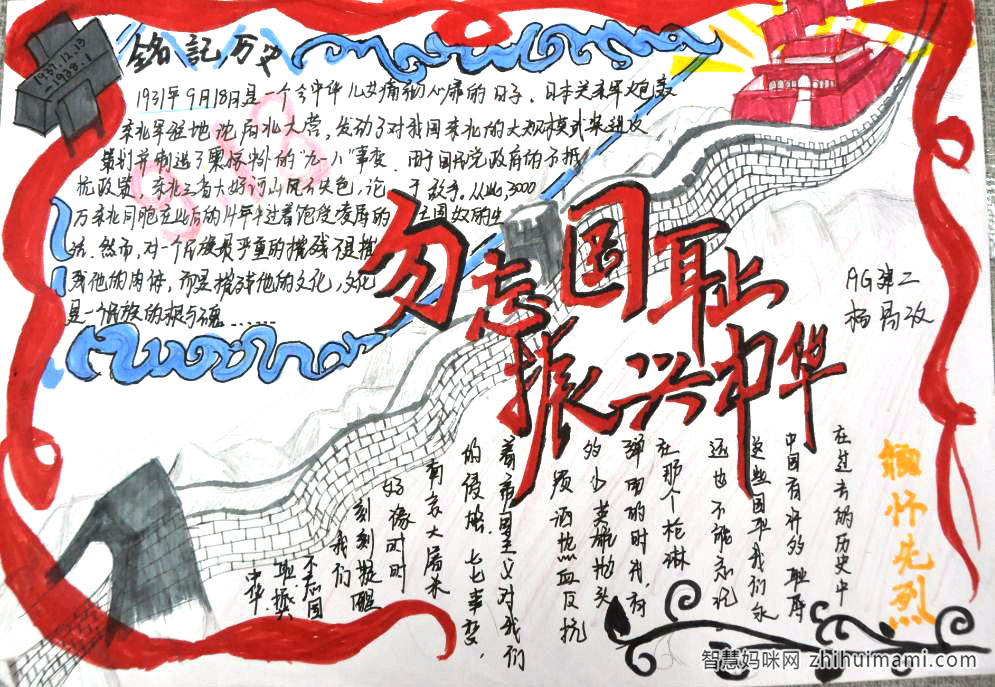 1937.12.13
-1938.1
铭記历史
1931年9月18日是一个令中华儿女痛彻心扉的日子,日本关东军炮轰
东北军驻地沈阳北大营,发动了对我国东北的大规模武装进攻
策划并制造了震惊中外的"九一八"事变.由于国民党政府的不抵
抗政策,东北三省大好河山风云失色,沦于敌手,从此,3000
万东北同胞在此后的14年中过着饱受凌辱的亡国奴的生
活.然而,对一个民族最严重的摧残不是摧
残他的肉体,而是摧残他的文化,文化
是一个民族的根与魂......
9.18
勿忘国耻
振兴中华
缅怀先烈
在过去的历史中
中国有许多耻辱
这些国耻我们永
远也不能忘记
在那个枪淋
弹雨的时代,有
多少英雄抛头
颅洒热血反抗
着帝国主义对我们
的侵略 七七事变,
南京大屠杀
好像时时
刻刻提醒
我们
不忘国
耻振兴
中华
智慧妈咪网 zhihuimami.com